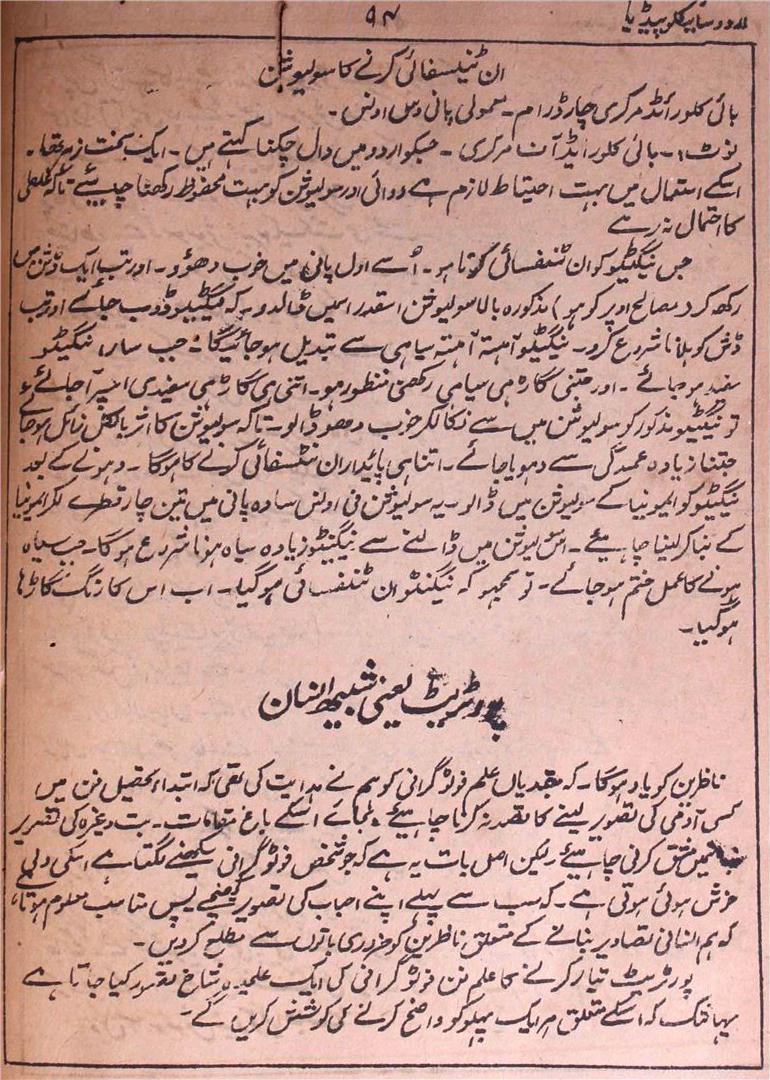 اردو سائیکلوپیڈیا
۹۴
ان ٹنیسفائی کرنے کا سولیوشن
بائی کلورائڈ مرکری چار ڈرام ۔ معمولی پانی دس اونس ۔
نوٹ :۔ بائی کلورایڈ آف مرکری ۔ جسکو اردو میں دال چکنا کہتے ہیں ۔ ایک سخت زہر تھا ۔
اسکے استعمال میں بہت احتیاط لازم ہے دوائی اور سولیوشن کو بہت محفوظ رکھنا چاہیئے تاکہ غلطی
کا احتمال نہ رہے
جس نیگیٹیو کو ان ٹنفسائی کرنا ہو ۔ اُسے اول پانی میں خوب دھوؤ ۔ اور تب ایک ڈش میں
رکھ کر (مصالح اوپر کو ہو) مذکورہ بالا سولیوشن اسقدر اسمیں ڈالدو ۔ کہ نیگیٹیو ڈوب جائے اور تب
ڈش کو ہلانا شروع کرو ۔ نیگیٹیو آہستہ آہستہ سیاہی سے تبدیل ہو جائیگا ۔ جب سارا نیگیٹو
سفید ہو جائے ۔ اور جتنی گاڑہی سیاہی رکھنی منظور ہو ۔ اتنی ہی گاڑہی سفیدی اسپر آجائے
تو نیگیٹیو مذکور کو سولیوشن میں سے نکالکر خوب دھو ڈالو ۔ تاکہ سولیوشن کا اثر بالکل زائل ہو جائے
جتنا زیادہ عمدگی سے دہویا جائے ۔ اتنا ہی پائیدار ان ٹنسفائی کرنے کا ہوگا ۔ دہونے کے بعد
نیگیٹو کو ایمونیا کے سولیوشن میں ڈالو ۔ یہ سولیوشن فی اونس سادہ پانی میں تین چار قطرے لکر ایمونیا
کے بنا کر لینا چاہیئے ۔ اس سولیوشن میں ڈالنے سے نیگیٹو زیادہ سیاہ ہونا شروع ہوگا ۔ جب سیاہ
ہونے کا عمل ختم ہو جائے ۔ تو سمجہو کہ نیگیٹو ان ٹنفسائی ہو گیا ۔ اب اس کا رنگ گاڑہا
ہو گیا ۔
پورٹریٹ یعنی شبیہ انسان
ناظرین کو یاد ہوگا ۔ کہ مبتدیان علم فوٹوگرافی کو ہم نے ہدایت کی تھی کہ ابتداء تحصیل فن میں
کسی آدمی کی تصویر لینے کا قصد نہ کرنا چاہیئے ۔ بجائے اسکے باغ مقامات ۔ بت وغیرہ کی تصویر
میں مشق کرنی چاہیئے لیکن اصل بات یہ ہے کہ جو شخص فوٹوگرافی سیکھنے لگتا ہے اسکی دلی
خواہش ہوئی ہوتی ہے ۔ کہ سب سے پہلے اپنے احباب کی تصویر کھینچے پس مناسب معلوم ہوتا ہے
کہ ہم انسانی تصاویر بنانے کے متعلق ناظرین کو ضروری باتوں سے مطلع کردیں ۔
پورٹریٹ تیار کرنے کا علم فن فوٹوگرافی کی ایک علحیدہ شاخ تصور کیا جاتا ہے
یہانتک کہ اسکے متعلق ہر ایک پہلو کو واضح کرنے کی کوشش کریں گے ۔